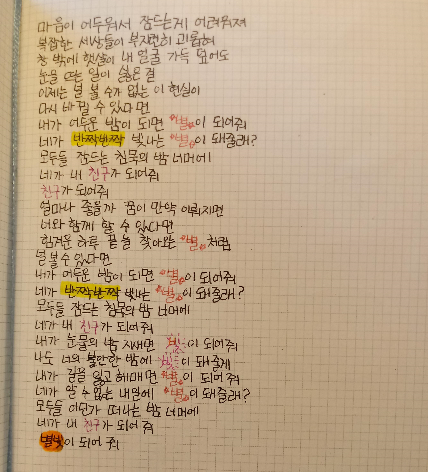 마음이 어두워서 잠드는게 어려워져
복잡한 세상들이 부지런히 괴롭혀
창 밖에 햇살이 내 얼굴 가득 덮어도
눈물 뜨는 일이 싫은 걸
이제는 널 볼 수가 없는 이 현실이
다시 바뀔 수 있다면
내가 어두운 밤이 되면 "별"이 되어줘
네가 반짝반짝 빛나는 "별"이 돼줄래?
모두들 잠드는 침묵의 밤 너머에
네가 내 친구가 되어줘
친구가 되어줘
얼마나 좋을까 꿈이 만약 이뤄지면
너와 함께 할 수 있다면
힘겨운 하루 끝을 찾아와 "별"처럼
널 볼 수 있다면
내가 어두운 밤이 되면 "별"이 되어줘
네가 반짝반짝 빛나는 "별"이 돼줄래?
모두들 잠드는 침묵의 밤 너머에
네가 내 친구가 되어줘
내가 눈물의 밤 지새면 "빛"이 되어줘
나도 너의 불안한 밤에 "빛"이 돼줄게
내가 길을 잃고 헤매면 "별"이 되어줘
네가 알 수 없는 내일에 "별"이 돼줄래?
모두들 어딘가 떠나는 밤 너머에
네가 내 친구가 되어줘
별빛이 되어 줘